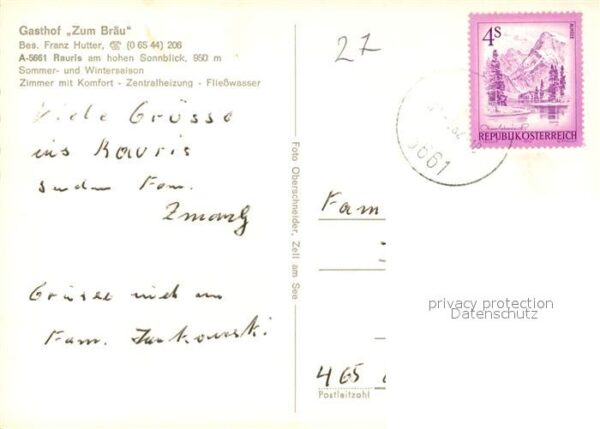 Gasthof „Zum Bräu"
Bes. Franz Hutter, ☎ (0 65 44) 206
A-5661 Rauris am hohen Sonnblick, 950 m
Sommer- und Wintersaison
Zimmer mit Komfort - Zentralheizung - Fließwasser
Viele Grüsse
Rauris
Fam.
Grüsse
Fam. Jankowski
Foto Oberschneider, Zell am See
27
4S
REPUBLIK ÖSTERREICH
5661
Fam
465
Postleitzahl
privacy protection
Datenschutz